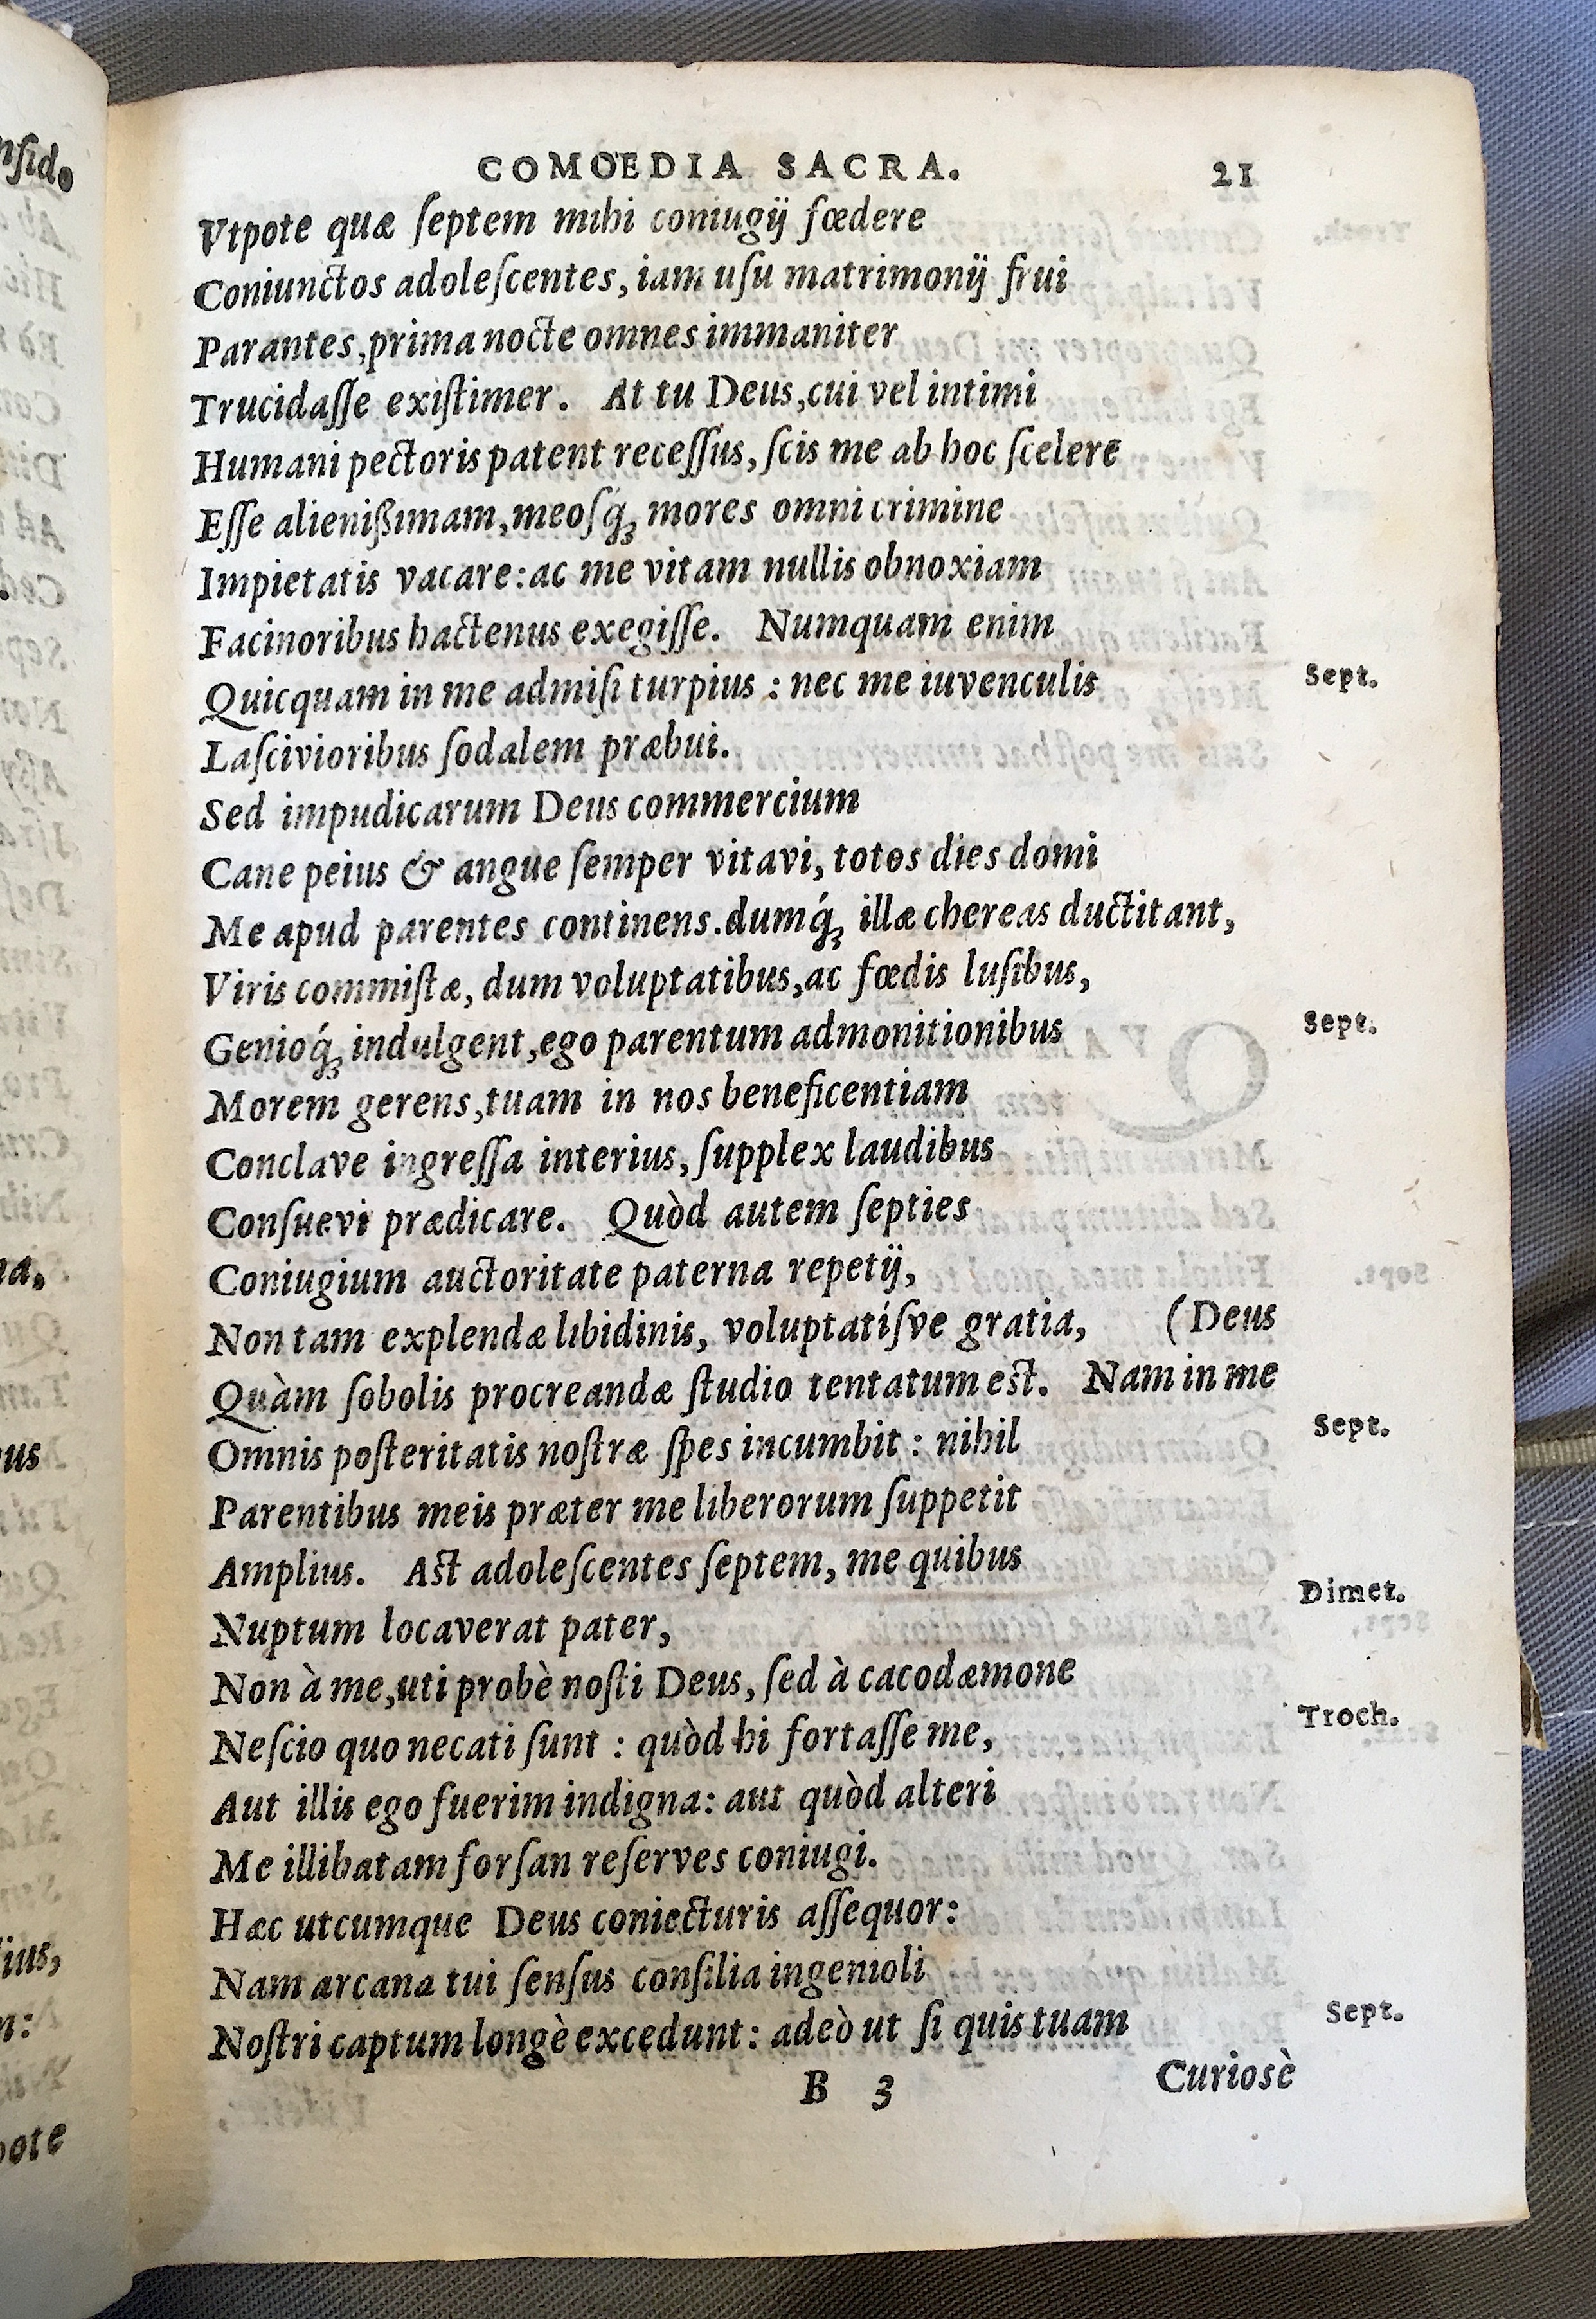 COMOEDIA SACRA. 21
Vtpote quæ ſeptem mihi coniugij fœdere
Coniunctos adoleſcentes, iam uſu matrimonij frui
Parantes, prima nocte omnes immaniter
Trucidaſſe exiſtimer. At tu Deus, cui vel intimi
Humani pectoris patent receſſus, ſcis me ab hoc ſcelere
Eſſe alienißimam, meoſq́; mores omni crimine
Impietatis vacare: ac me vitam nullis obnoxiam
Facinoribus hactenus exegiſſe. Numquam enim
Quicquam in me admiſi turpius : nec me iuvenculis Sept.
Laſcivioribus ſodalem præbui.
Sed impudicarum Deus commercium
Cane peius & angue ſemper vitavi, totos dies domi
Me apud parentes continens. dumq́; illæ chereas ductitant,
Viris commiſtæ, dum voluptatibus, ac fœdis luſibus,
Genioq́; indulgent, ego parentum admonitionibus Sept.
Morem gerens, tuam in nos beneficentiam
Conclave ingreſſa interius, ſupplex laudibus
Conſuevi prædicare. Quòd autem ſepties
Coniugium auctoritate paterna repetij,
Non tam explendæ libidinis, voluptatíſve gratia, (Deus
Quàm ſobolis procreandæ ſtudio tentatum est. Nam in me
Omnis poſteritatis noſtræ ſpes incumbit : nihil Sept.
Parentibus meis præter me liberorum ſuppetit
Amplius. Ast adoleſcentes ſeptem, me quibus
Nuptum locaverat pater, Dimet.
Non à me, uti probè noſti Deus, ſed à cacodæmone
Neſcio quo necati ſunt : quòd hi fortaſſe me, Troch.
Aut illis ego fuerim indigna: aut quòd alteri
Me illibatam forſan reſerves coniugi.
Hæc utcumque Deus coniecturis aſſequor:
Nam arcana tui ſenſus conſilia ingenioli
Noſtri captum longè excedunt: adeò ut ſi quis tuam Sept.
B 3 Curiosè